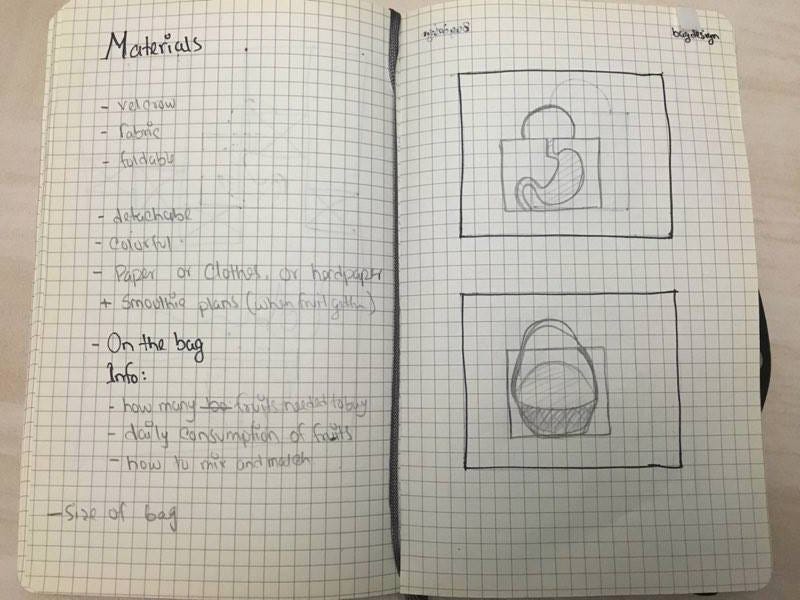 Materials
- velcrow
- fabric
- foldable
- detachable
- Colorful
- Paper or Clothes, or hardpaper
+ Smoothie plans (when fruit gotten)
- On the bag
Info:
- how many be fruits needed to buy
- daily consumption of fruits
- how to mix and match
- size of bag
bag design